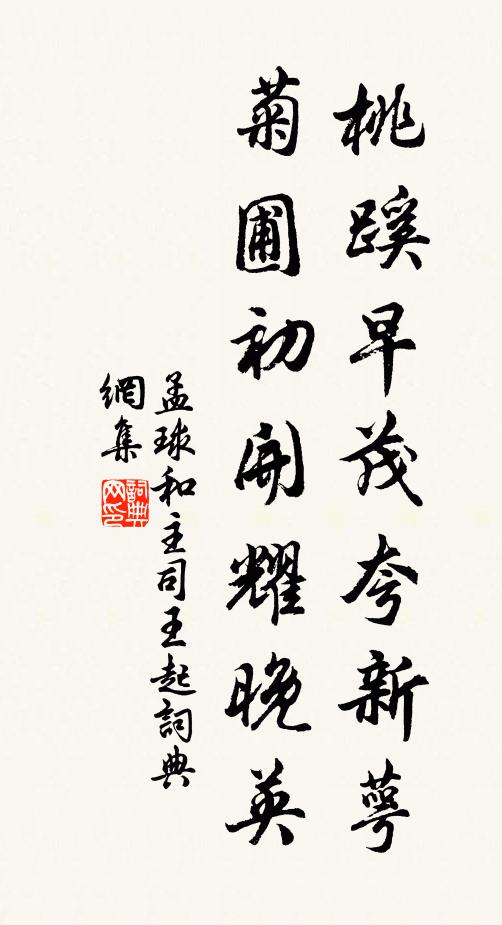 桃蹊早茂夸新萼
菊圃初開耀晚英
孟球和主司王起詞典
網集
詞典
网印